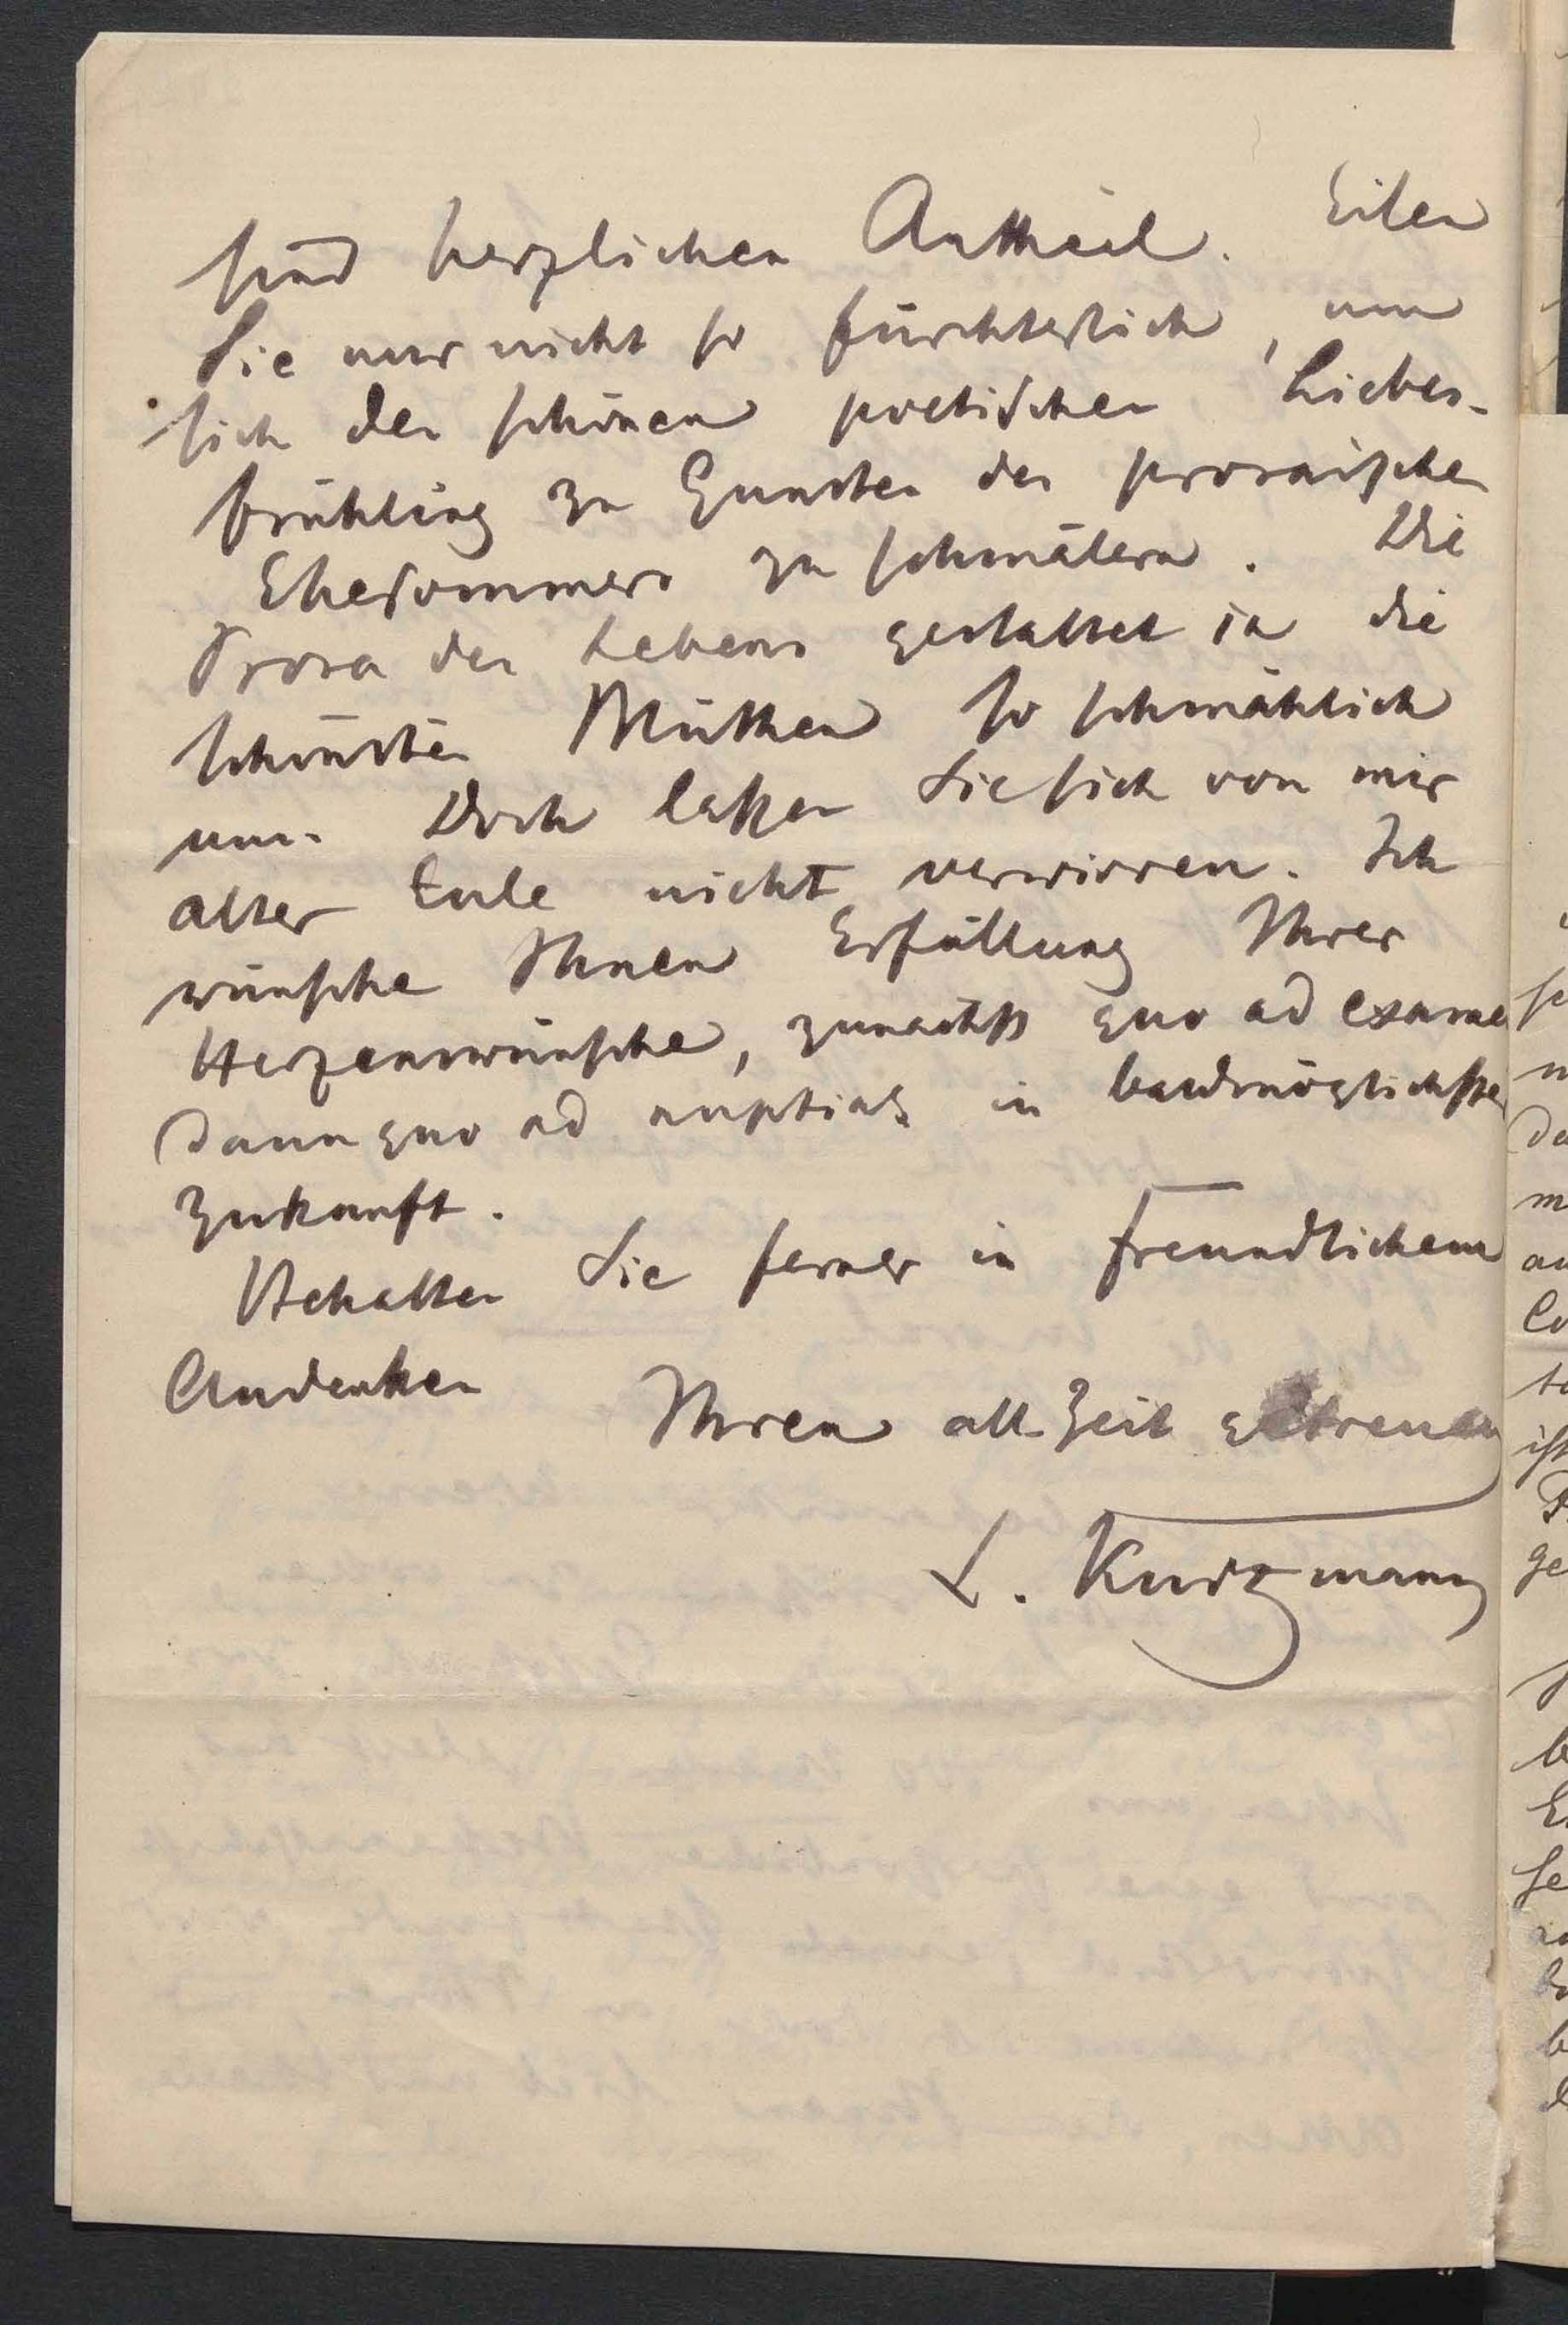 sind herzlichen Antheil. Eilen
Sie nur nicht so fürchterlich, um
sich den schönen poetischen Liebes-
frühling zu Gunsten des prosaischen
Ehesommers zu schmälern. Die
Prosa des Lebens gestaltet ja die
schönsten Mythen so schmählich
um. Doch laßen Sie sich von mir
alter Eule nicht verwirren. Ich
wünsche Ihnen Erfüllung Ihrer
Herzenswünsche, zunächst quo ad examen
dann quo ad nuptias in baldmöglichster
Zukunft.
Behalten Sie ferner in freundlichem
Andenken
Ihren all Zeit getreuen
L. Kurtzmann